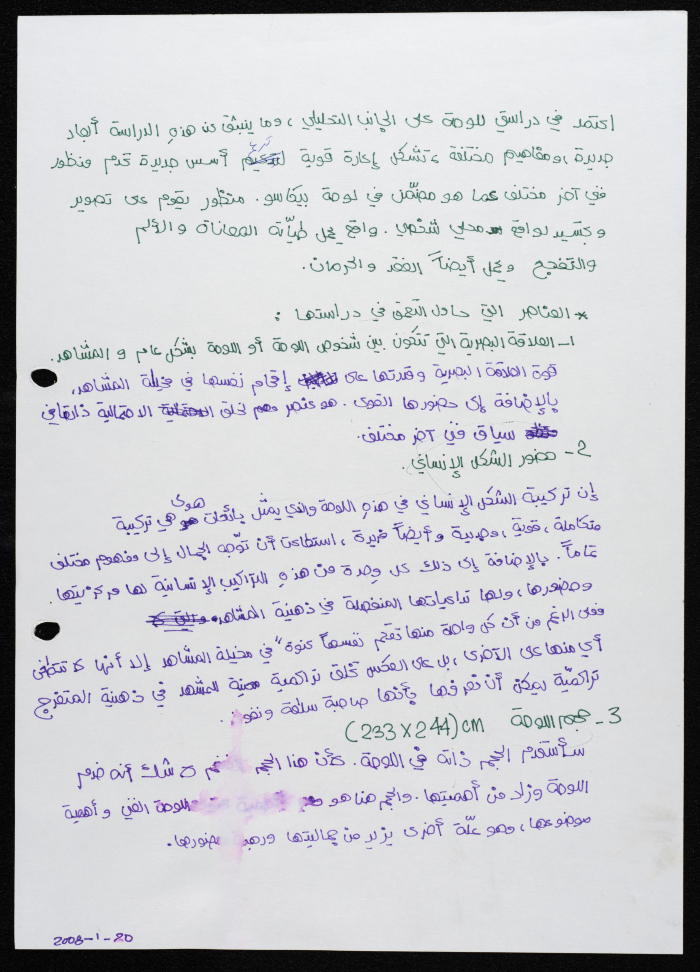 اعتمد في دراستي للوحة على الجانب التحليلي ، وما ينبثق عن هذه الدراسة أبعاد
جديدة ، ومفاهيم مختلفة ، تشكل إعادة قوية أسس جديدة تخدم منظور
فني آخر مختلف عما هو مضمّن في لوحة بيكاسو . منظور يقوم على تصوير
وتجسيد لواقع محلي شخصي . واقع يحمل طيّاته المعاناة والألم
والتفجع ويحمل أيضاً الفقد والحرمان .
* العناصر التي حاول التعمق في دراستها :
1- العلاقة البصرية التي تتكون بين شخوص اللوحة أو اللوحة بشكل عام و المشاهد .
قوة العلاقة البصرية وقدرتها على إقحام نفسها في مخيلة المشاهد ،
بالإضافة إلى حضورها القوي . هو عنصر مهم لخلق الاحتمالية ذاتها في
سياق فني آخر مختلف .
2- حضور الشكل الإنساني .
إن تركيبة الشكل الإنساني في هذه اللوحة والذي يمثل بائعات هوى هي تركيبة
متكاملة ، قوية ، وصلبة وأيضاً فريدة ، استطاعت أن توجّه الجمال إلى مفهوم مختلف
تماماً . بالإضافة إلى ذلك كل وحدة من هذه التراكيب الإنسانية لها مركزيتها
وحضورها ، ولها تداعياتها المنفصلة في ذهنية المشاهد .
فعلى الرغم من أن كل واحدة منها تقحم نفسها عنوة " في مخيلة المشاهد إلا أنها لا تطغى
أي منها على الأخرى ، بل على العكس تخلق تراكمية للمشهد في ذهنية المتفرج
تراكميّة يمكن أن نعرفها بأنها صاحبة سلطة ونفوذ .
3- حجم اللوحة (233 X 244) CM
سأستخدم الحجم ذاته في اللوحة . لأن هذا الحجم لا شك أنه خدم
اللوحة وزاد من أهميتها . والحجم هنا هو اللوحة الفني وأهمية
موضوعها ، وهو علّة أخرى يزيد من جماليتها ورهبة حضورها .
2008-1-20